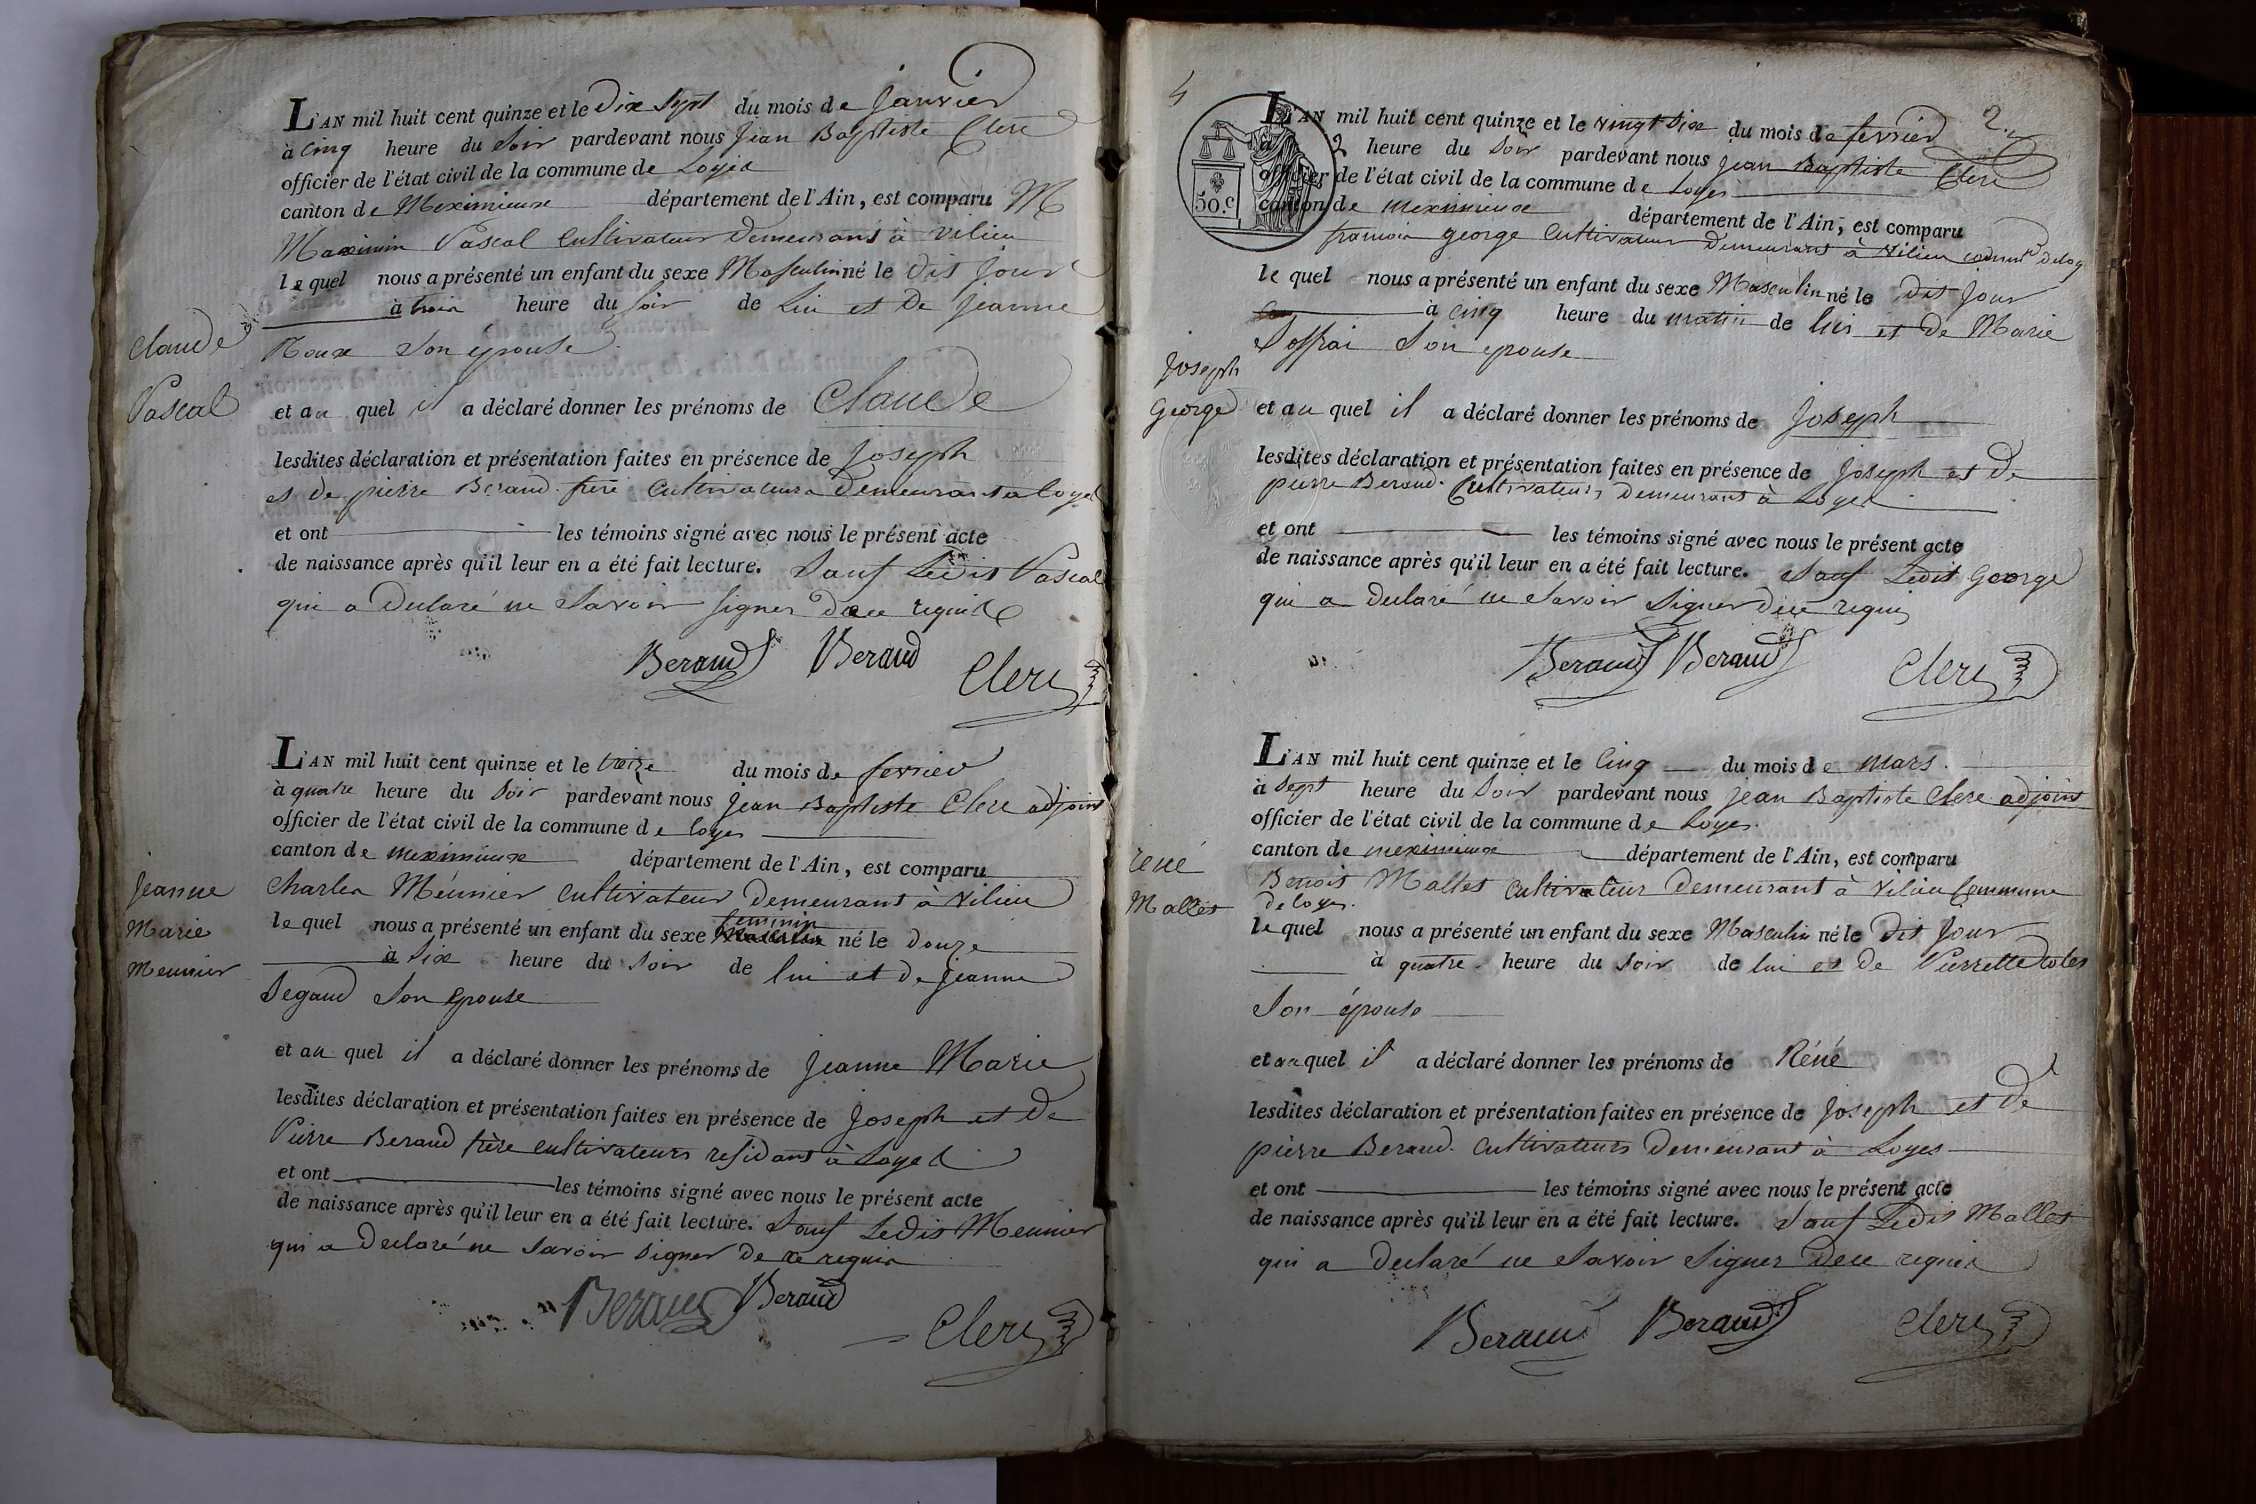 L'AN mil huit cent quinze et le Dix Sept du mois de Janvier
à Cinq heure du Soir pardevant nous Jean Baptiste Clerc
officier de l'état civil de la commune de Loyes
canton de Meximieux département de l'Ain, est comparu M
Maximin Pascal Cultivateur Demeurant à Vilieu
lequel nous a présenté un enfant du sexe Masculin né le dit Jour
à trois heure du Soir de Lui et De Jeanne
Claude
Roux Son epouse
Pascal
et au quel il a déclaré donner les prénoms de Claude
lesdites déclaration et présentation faites en présence de Joseph
et de pierre Beraud frere Cultivateurs Demeurant a Loyes
et ont les témoins signé avec nous le présent acte
de naissance après qu'il leur en a été fait lecture. Sauf Ledit Pascal
qui a Declaré ne Savoir Signer De ce requis
Beraud Beraud Clerc
L'AN mil huit cent quinze et le treize du mois de fevrier
à quatre heure du Soir pardevant nous Jean Baptiste Clerc adjoint
officier de l'état civil de la commune de Loyes
canton de meximieux département de l'Ain, est comparu
Jeanne
Marie
Meunier
Charles Meunier Cultivateur Demeurant à Vilieu
feminin
lequel nous a présenté un enfant du sexe Masculin né le Douze
à Six heure du Soir de lui et De Jeanne
Segaud Son Epouse
et au quel il a déclaré donner les prénoms de Jeanne Marie
lesdites déclaration et présentation faites en présence de Joseph et De
Pierre Beraud frère cultivateurs residant à Loyes
et ont les témoins signé avec nous le présent acte
de naissance après qu'il leur en a été fait lecture. Sauf Ledit Meunier
qui a Declaré ne Savoir Signer De ce requis
Beraud Beraud Clerc
4
2
50.c
L'AN mil huit cent quinze et le vingt Six du mois de fevrier
à 2 heure du Soir pardevant nous Jean Baptiste Clerc
officier de l'état civil de la commune de Loyes
canton de meximieux département de l'Ain, est comparu
francois george Cultivateur Demeurant à Vilieu
lequel nous a présenté un enfant du sexe Masculin né le Dit Jour
à cinq heure du matin de lui et De Marie
Soffrai Son epouse
Joseph
George
et au quel il a déclaré donner les prénoms de Joseph
lesdites déclaration et présentation faites en présence de Joseph et De
pierre Beraud Cultivateurs Demeurant à Loyes
et ont les témoins signé avec nous le présent acte
de naissance après qu'il leur en a été fait lecture. Sauf Ledit George
qui a Declaré ne Savoir Signer De ce requis
Beraud Beraud Clerc
L'AN mil huit cent quinze et le Cinq du mois de Mars.
à Sept heure du Soir pardevant nous Jean Baptiste Clerc adjoint
officier de l'état civil de la commune de Loyes.
canton de meximieux département de l'Ain, est comparu
réné
Mallet
Benoit Mallet Cultivateur Demeurant à Vilieu Commune
de Loyes.
lequel nous a présenté un enfant du sexe Masculin né le Dit Jour
à quatre heure du Soir de lui et De Pierrette
Son épouse
et au quel il a déclaré donner les prénoms de Réné
lesdites déclaration et présentation faites en présence de Joseph et De
pierre Beraud. Cultivateurs Demeurant à Loyes
et ont les témoins signé avec nous le présent acte
de naissance après qu'il leur en a été fait lecture. Sauf Ledit Mallet
qui a Declaré ne Savoir Signer De ce requis
Beraud Beraud Clerc